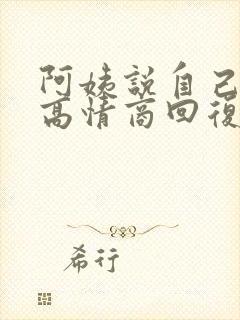 阿姨說自己
高情商回復
希行